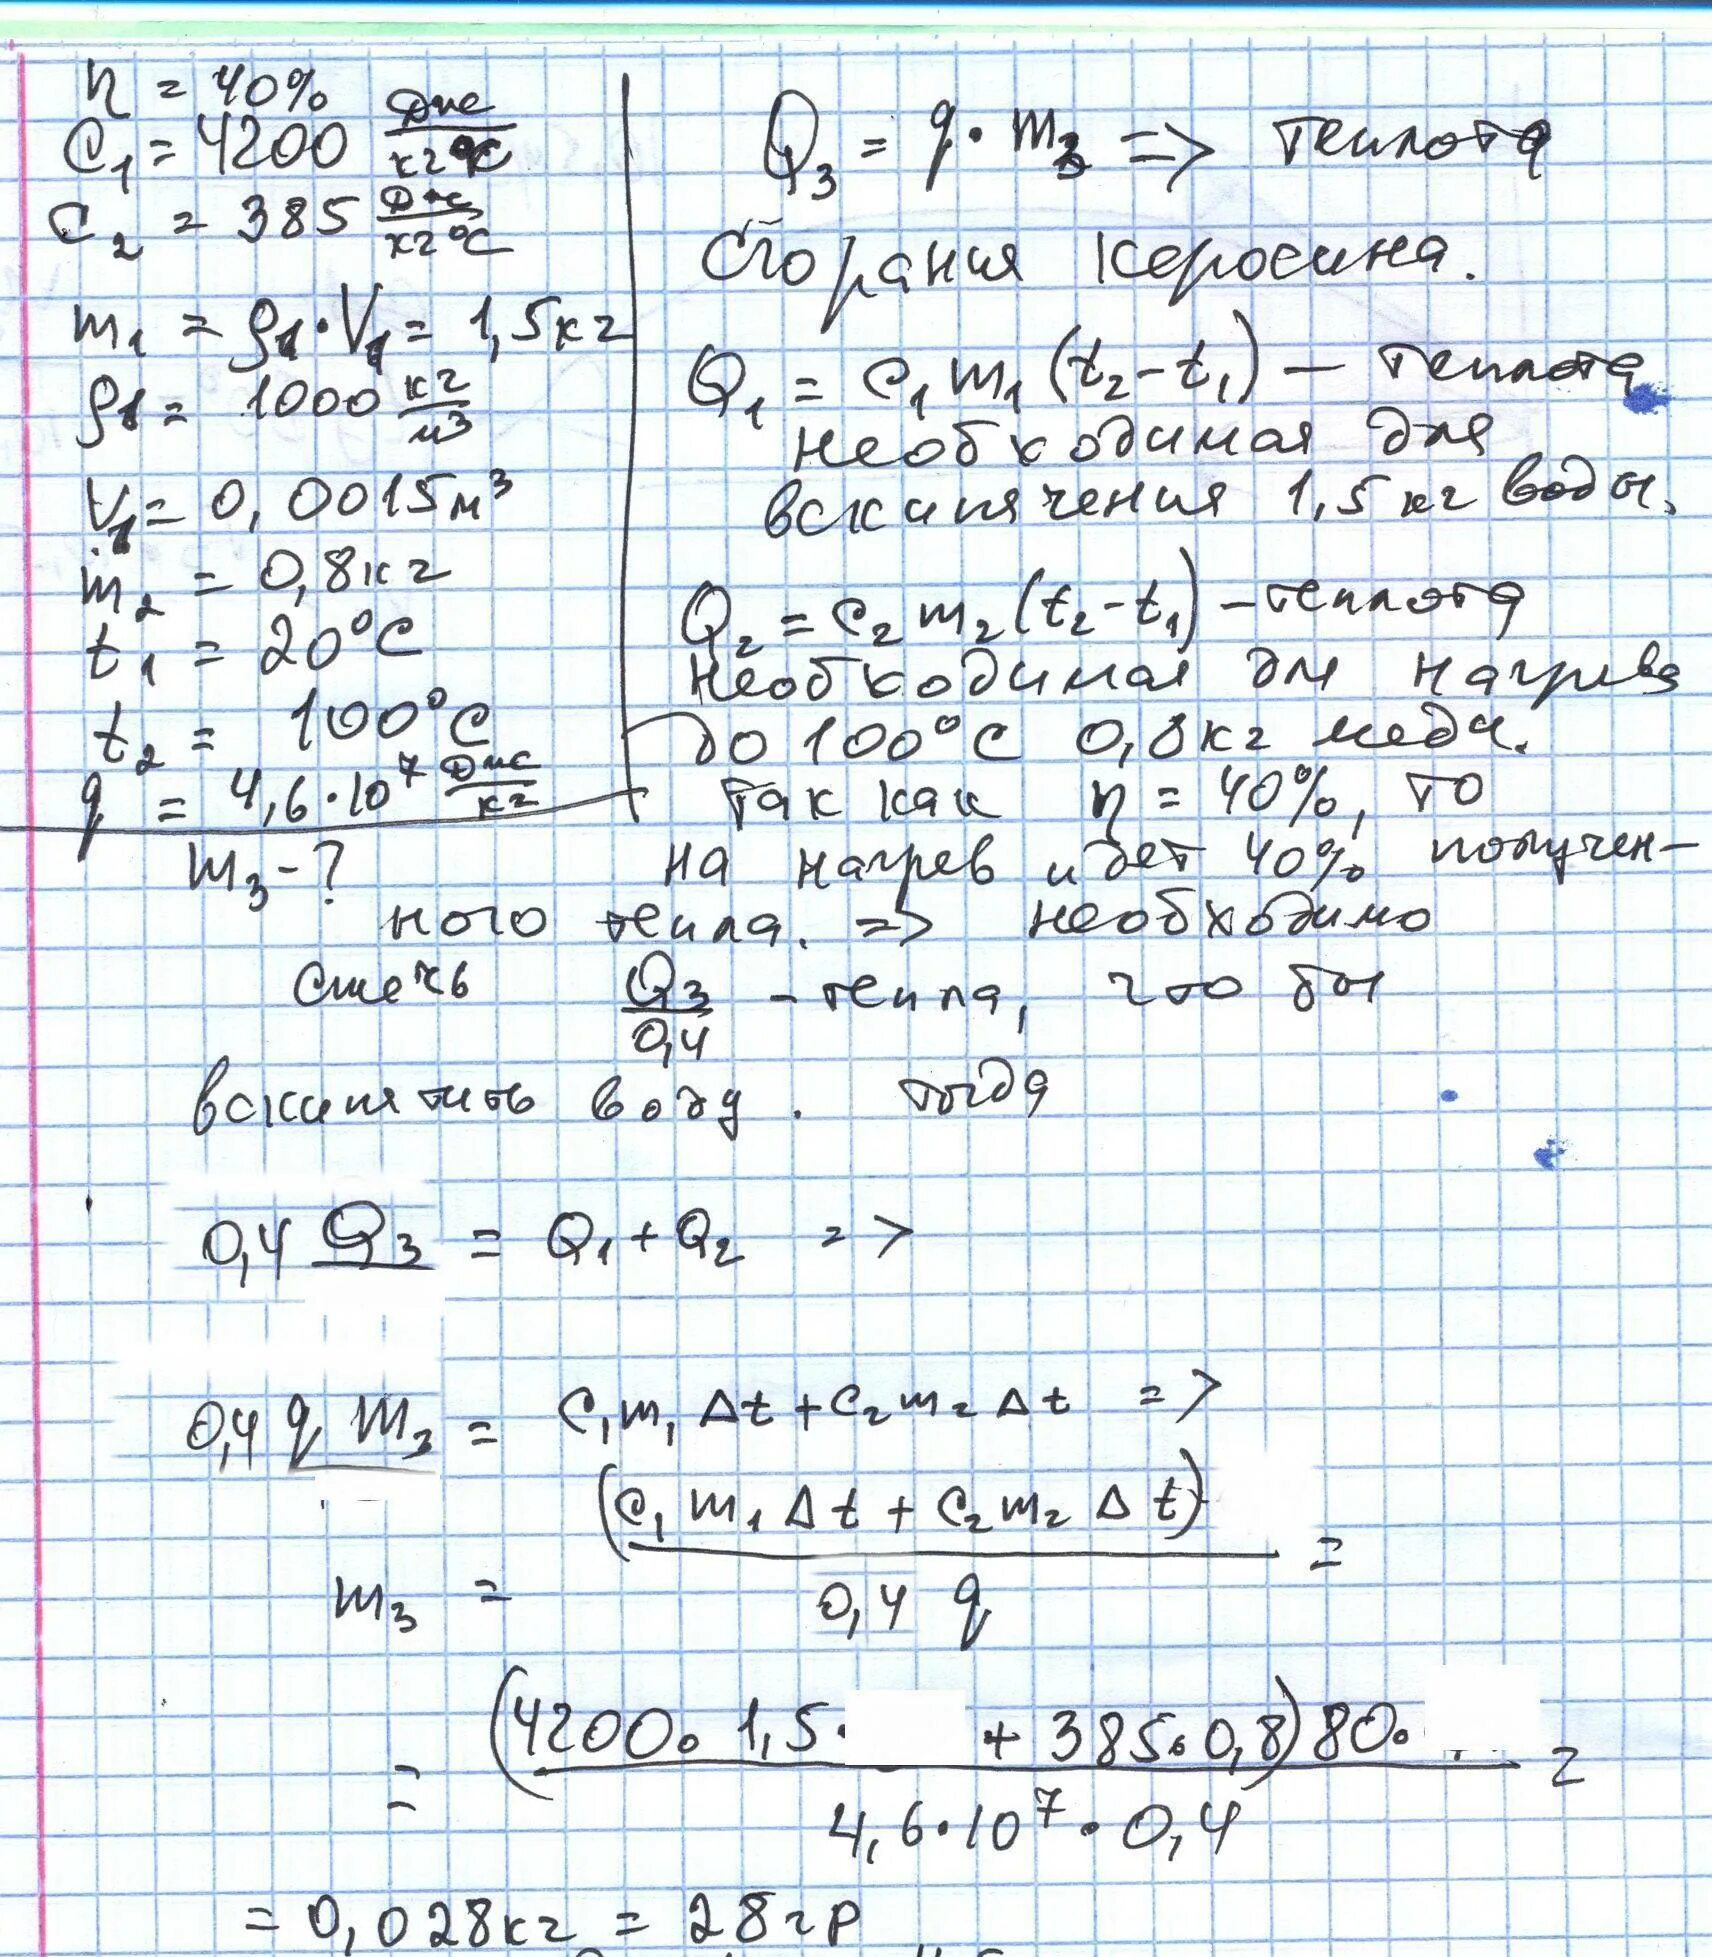 η = 40%
C₁ = 4200 Дж/кг°C
C₂ = 385 Дж/кг°C
m₁ = ρ₁·V₁ = 1,5кг
ρ₁ = 1000 кг/м³
V₁ = 0,0015м³
m₂ = 0,8кг
t₁ = 20°C
t₂ = 100°C
q = 4,6·10⁷ Дж/кг
m₃ - ?
Q₃ = q·m₃ => теплота
сгорания керосина.
Q₁ = c₁m₁(t₂-t₁) — теплота
необходимая для
вскипячения 1,5кг воды.
Q₂ = c₂m₂(t₂-t₁) – теплота
необходимая для нагрева
до 100°C 0,8кг меди.
так как η = 40%, то
на нагрев идет 40% получен-
ного тепла. => необходимо
сжечь Q₃/0,4 - тепла, что бы
вскипятить воду. тогда
0,4 Q₃ = Q₁ + Q₂ =>
0,4 q m₃ = c₁m₁Δt + c₂m₂Δt =>
m₃ = (c₁m₁Δt + c₂m₂Δt)/0,4 q =
= (4200·1,5· + 385·0,8)80·/4,6·10⁷·0,4 =
= 0,028кг = 28гр